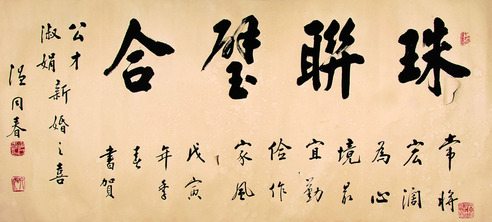 珠聯璧合
常將
宏闊
為心
境最
宜勤
儉作
家風
戊寅
年季
春
書賀
公才
淑娟新婚之喜
溫同春